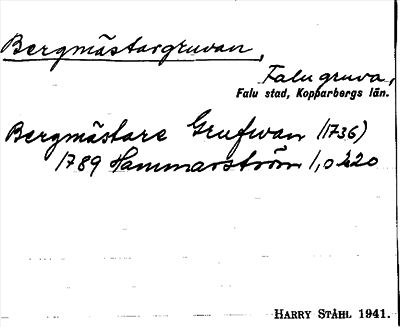 Bergmästargruvan,
Falu gruva,
Falu stad, Kopparbergs län.
Bergmästare Grufwan (1736)
1789 Hammarström 1,0
HARRY STÅHL 1941.